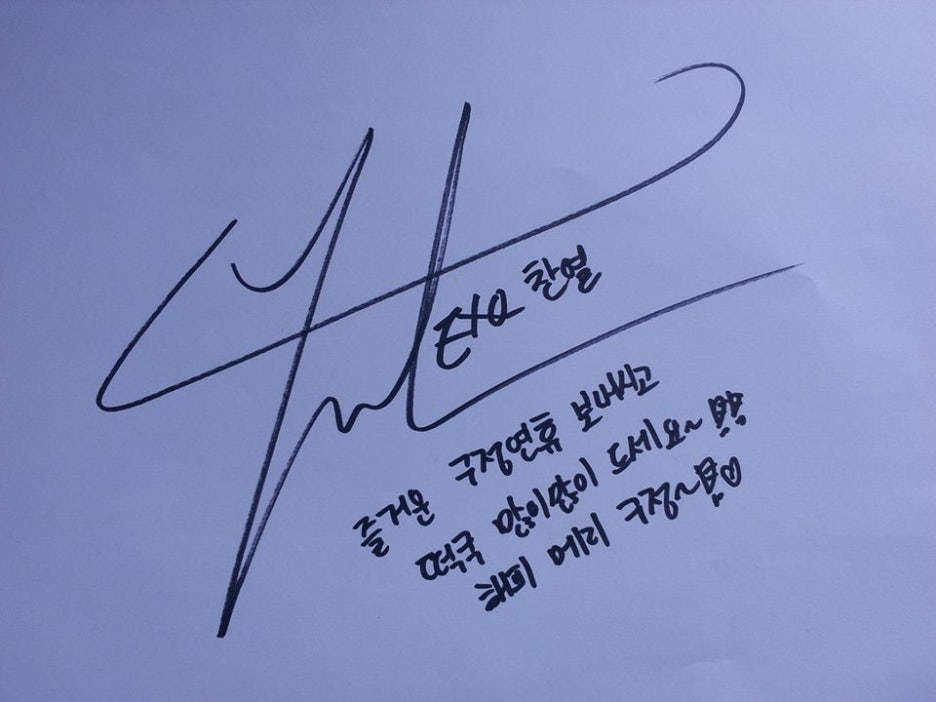 EXO 찬열
즐거운 구정연휴 보내시고
떡국 많이많이 드세요~
해피 메리 구정~♡